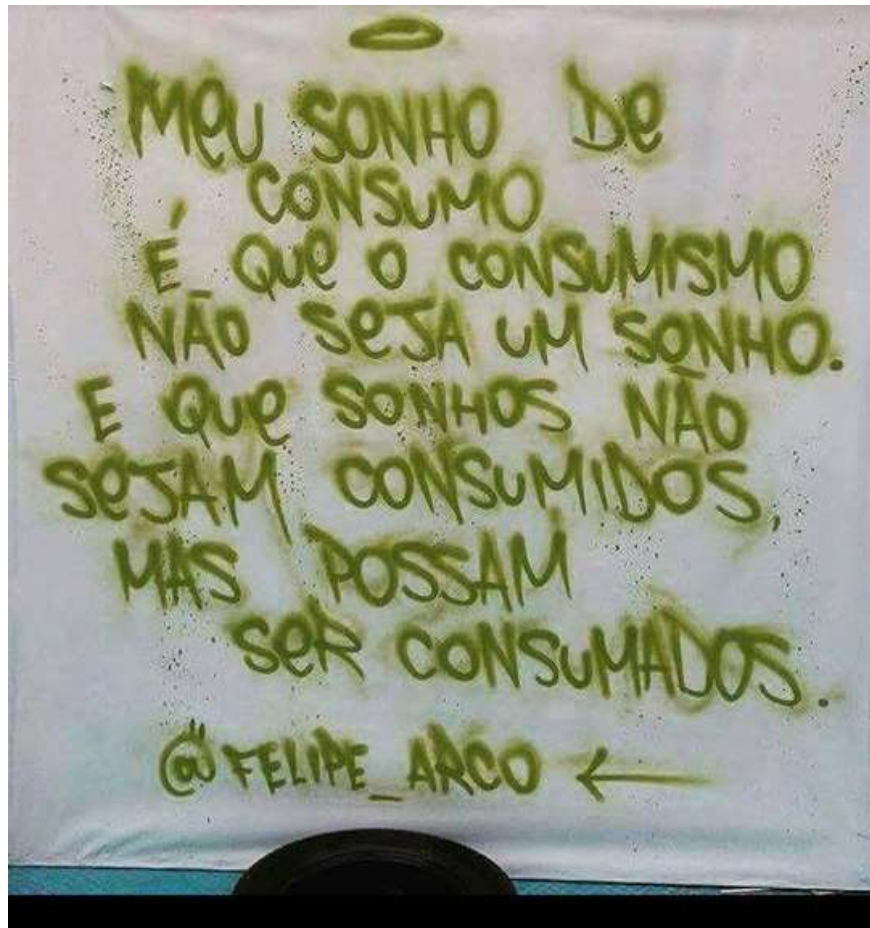 MeU SONHO De
CONSUMO
É QUe O CONSUMISMO
NÃO SeJA UM SONHO.
E QUe SONHOS NÃO
SeJAM CONSUMIDOS,
MAS POSSAM
SeR CONSUMADOS.
@FELIPE_ARCO ←